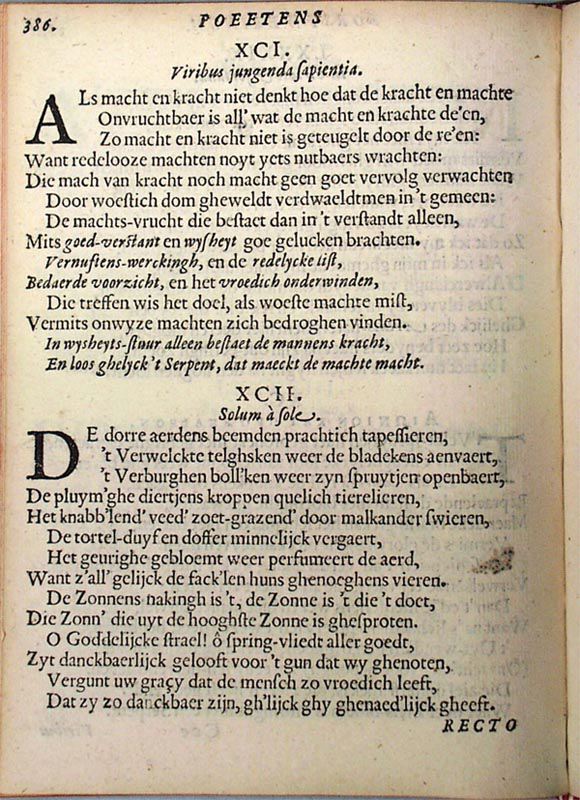 386. POEETENS
XCI.
Viribus jungenda sapientia.
ALs macht en kracht niet denkt hoe dat de kracht en machte
Onvruchtbaer is all' wat de macht en krachte de'en,
Zo macht en kracht niet is geteugelt door de re'en:
Want redelooze machten noyt yets nutbaers wrachten:
Die mach van kracht noch macht geen goet vervolg verwachten
Door woestich dom gheweldt verdwaeldtmen in 't gemeen:
De machts-vrucht die bestaet dan in 't verstandt alleen,
Mits goed-verstant en wysheyt goe gelucken brachten.
Vernuftens-werckingh, en de redelycke list,
Bedaerde voorzicht, en het vroedich onderwinden,
Die treffen wis het doel, als woeste machte mist,
Vermits onwyze machten zich bedroghen vinden.
In wysheyts-stuur alleen bestaet de mannens kracht,
En loos ghelyck 't Serpent, dat maeckt de machte macht.
XCII.
Solum à sole.
DE dorre aerdens beemden prachtich tapessieren,
't Verwelckte telghsken weer de bladekens aenvaert,
't Verburghen boll'ken weer zyn spruytjen openbaert,
De pluym'ghe diertjens kroppen quelich tierelieren,
Het knabb'lend' veed' zoet-grazend' door malkander swieren,
De tortel-duyf en doffer minnelijck vergaert,
Het geurighe gebloemt weer perfumeert de aerd,
Want z'all' gelijck de fack'len huns ghenoeghens vieren.
De Zonnens nakingh is 't, de Zonne is 't die 't doet,
Die Zonn' die uyt de hooghste Zonne is ghesproten.
O Goddelijcke strael! ô spring-vliedt aller goedt,
Zyt danckbaerlijck gelooft voor 't gun dat wy ghenoten,
Vergunt uw graçy dat de mensch zo vroedich leeft,
Dat zy zo danckbaer zijn, gh'lijck ghy ghenaed'lijck gheeft.
RECTO